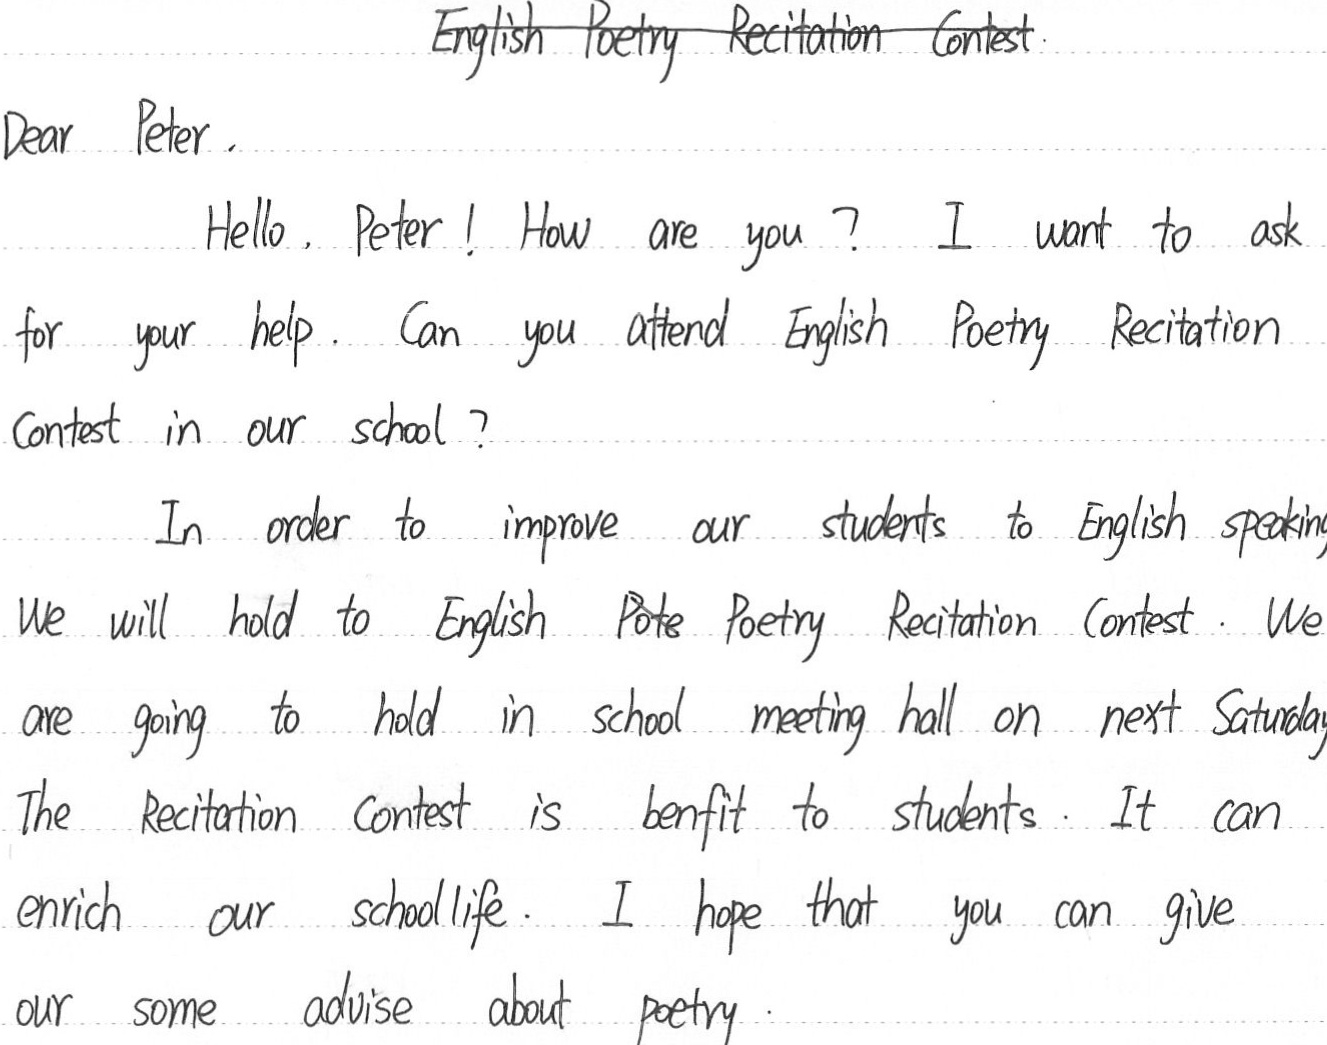 English Poetry Recitation Contest.
Dear Peter,
Hello, Peter! How are you? I want to ask
for your help. Can you attend English Poetry Recitation
Contest in our school?
In order to improve our students to English speaking
We will hold to English Pote Poetry Recitation Contest. We
are going to hold in school meeting hall on next Saturday
The Recitation Contest is benfit to students. It can
enrich our school life. I hope that you can give
our some advise about poetry.